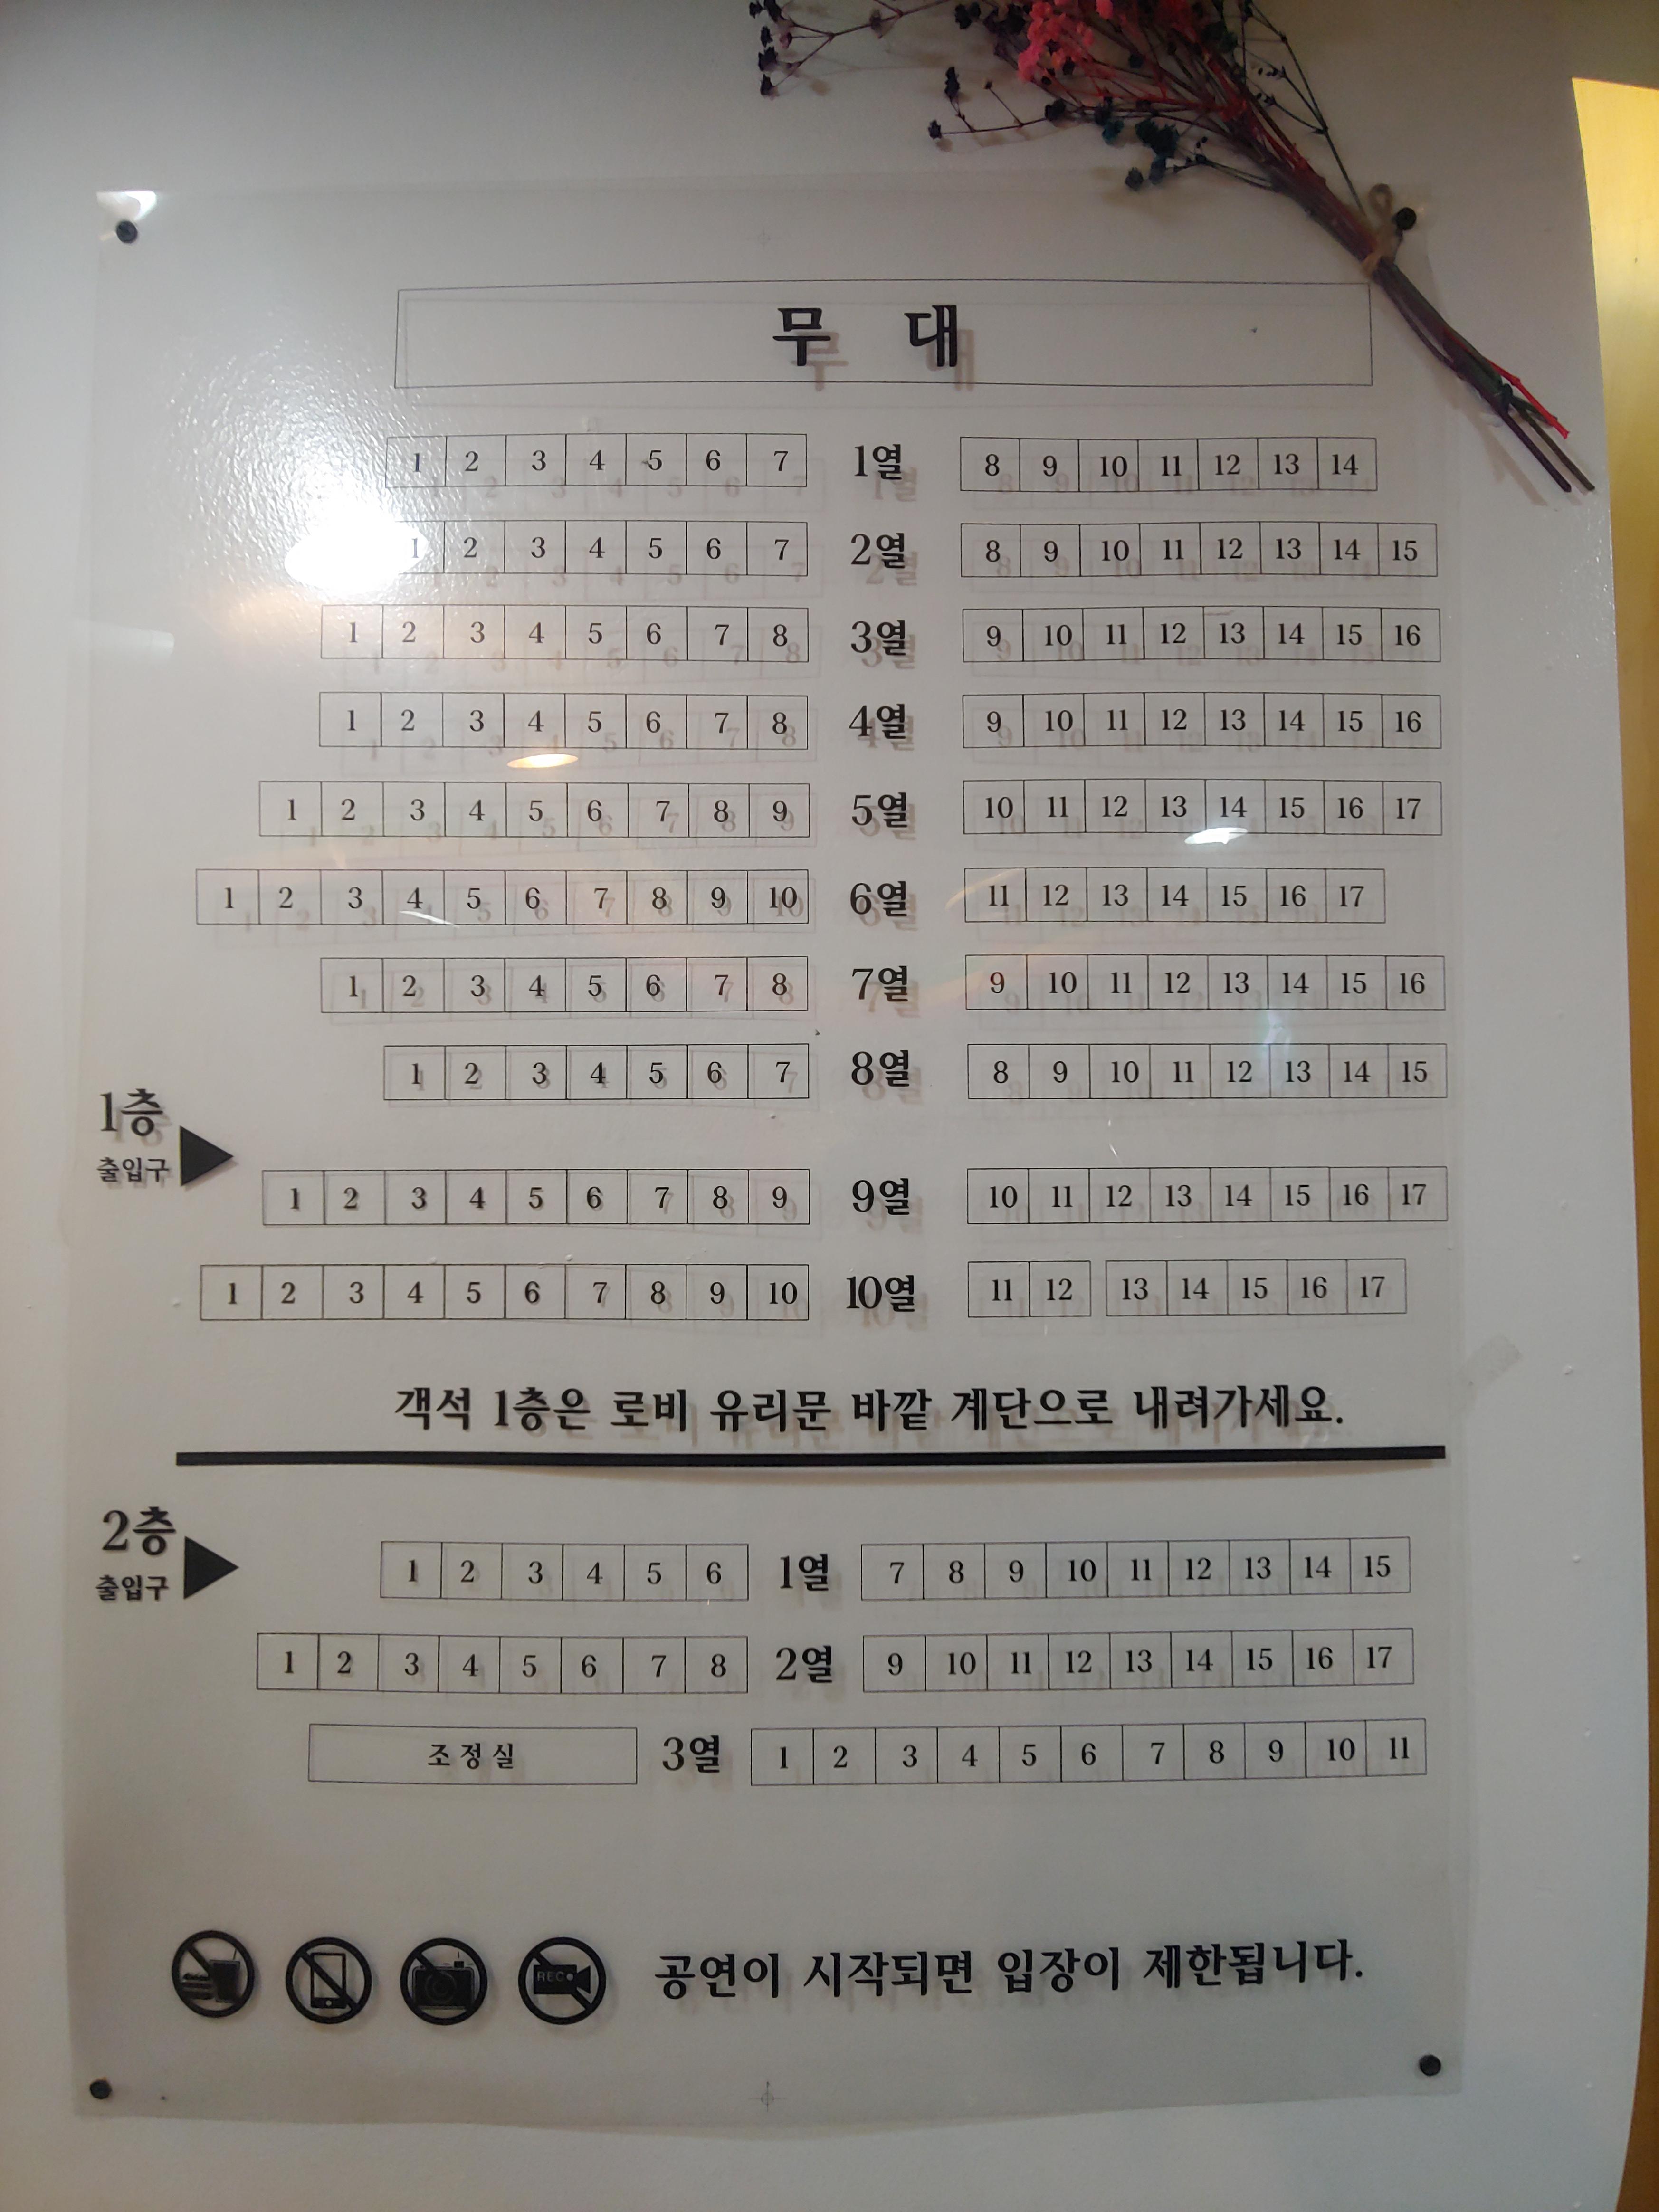 무 대
1 2 3 4 5 6 7 1열 8 9 10 11 12 13 14
1 2 3 4 5 6 7 2열 8 9 10 11 12 13 14 15
1 2 3 4 5 6 7 8 3열 9 10 11 12 13 14 15 16
1 2 3 4 5 6 7 8 4열 9 10 11 12 13 14 15 16
1 2 3 4 5 6 7 8 9 5열 10 11 12 13 14 15 16 17
1 2 3 4 5 6 7 8 9 10 6열 11 12 13 14 15 16 17
1 2 3 4 5 6 7 8 7열 9 10 11 12 13 14 15 16
1 2 3 4 5 6 7 8열 8 9 10 11 12 13 14 15
1층
출입구
1 2 3 4 5 6 7 8 9 9열 10 11 12 13 14 15 16 17
1 2 3 4 5 6 7 8 9 10 10열 11 12 13 14 15 16 17
객석 1층은 로비 유리문 바깥 계단으로 내려가세요.
2층
출입구
1 2 3 4 5 6 1열 7 8 9 10 11 12 13 14 15
1 2 3 4 5 6 7 8 2열 9 10 11 12 13 14 15 16 17
조정실 3열 1 2 3 4 5 6 7 8 9 10 11
REC
공연이 시작되면 입장이 제한됩니다.